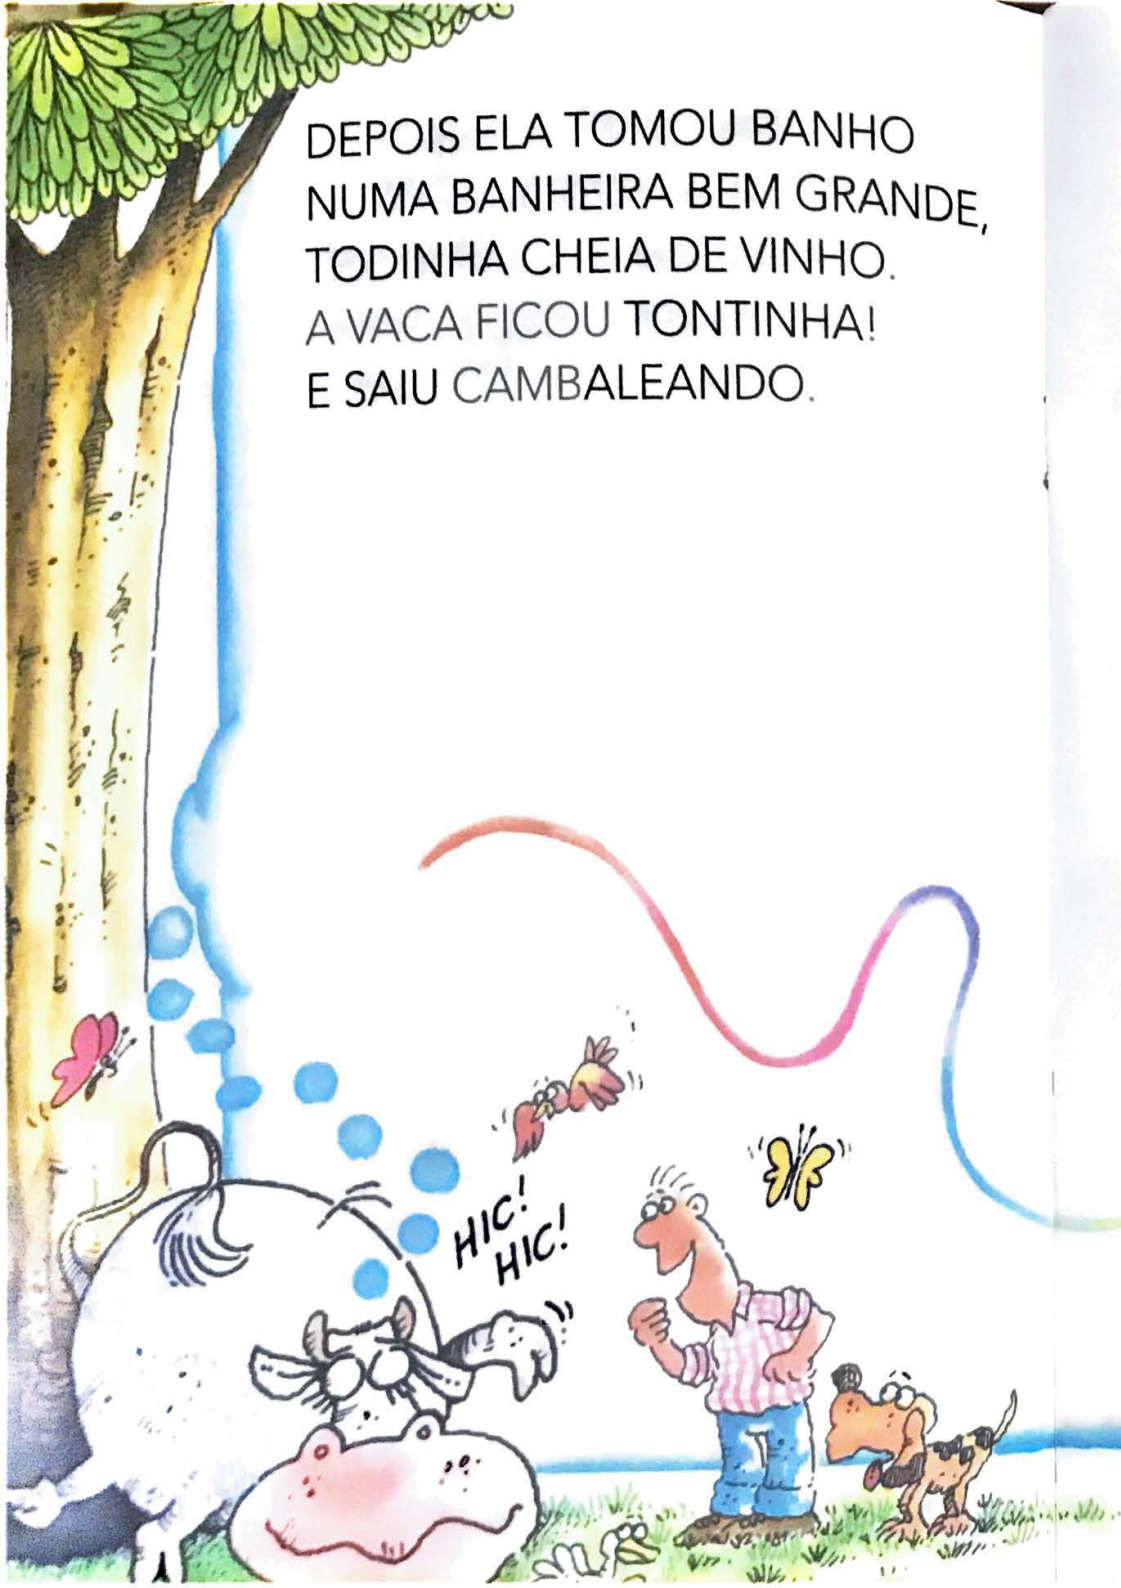 DEPOIS ELA TOMOU BANHO
NUMA BANHEIRA BEM GRANDE,
TODINHA CHEIA DE VINHO.
A VACA FICOU TONTINHA!
E SAIU CAMBALEANDO.
HIC!
HIC!